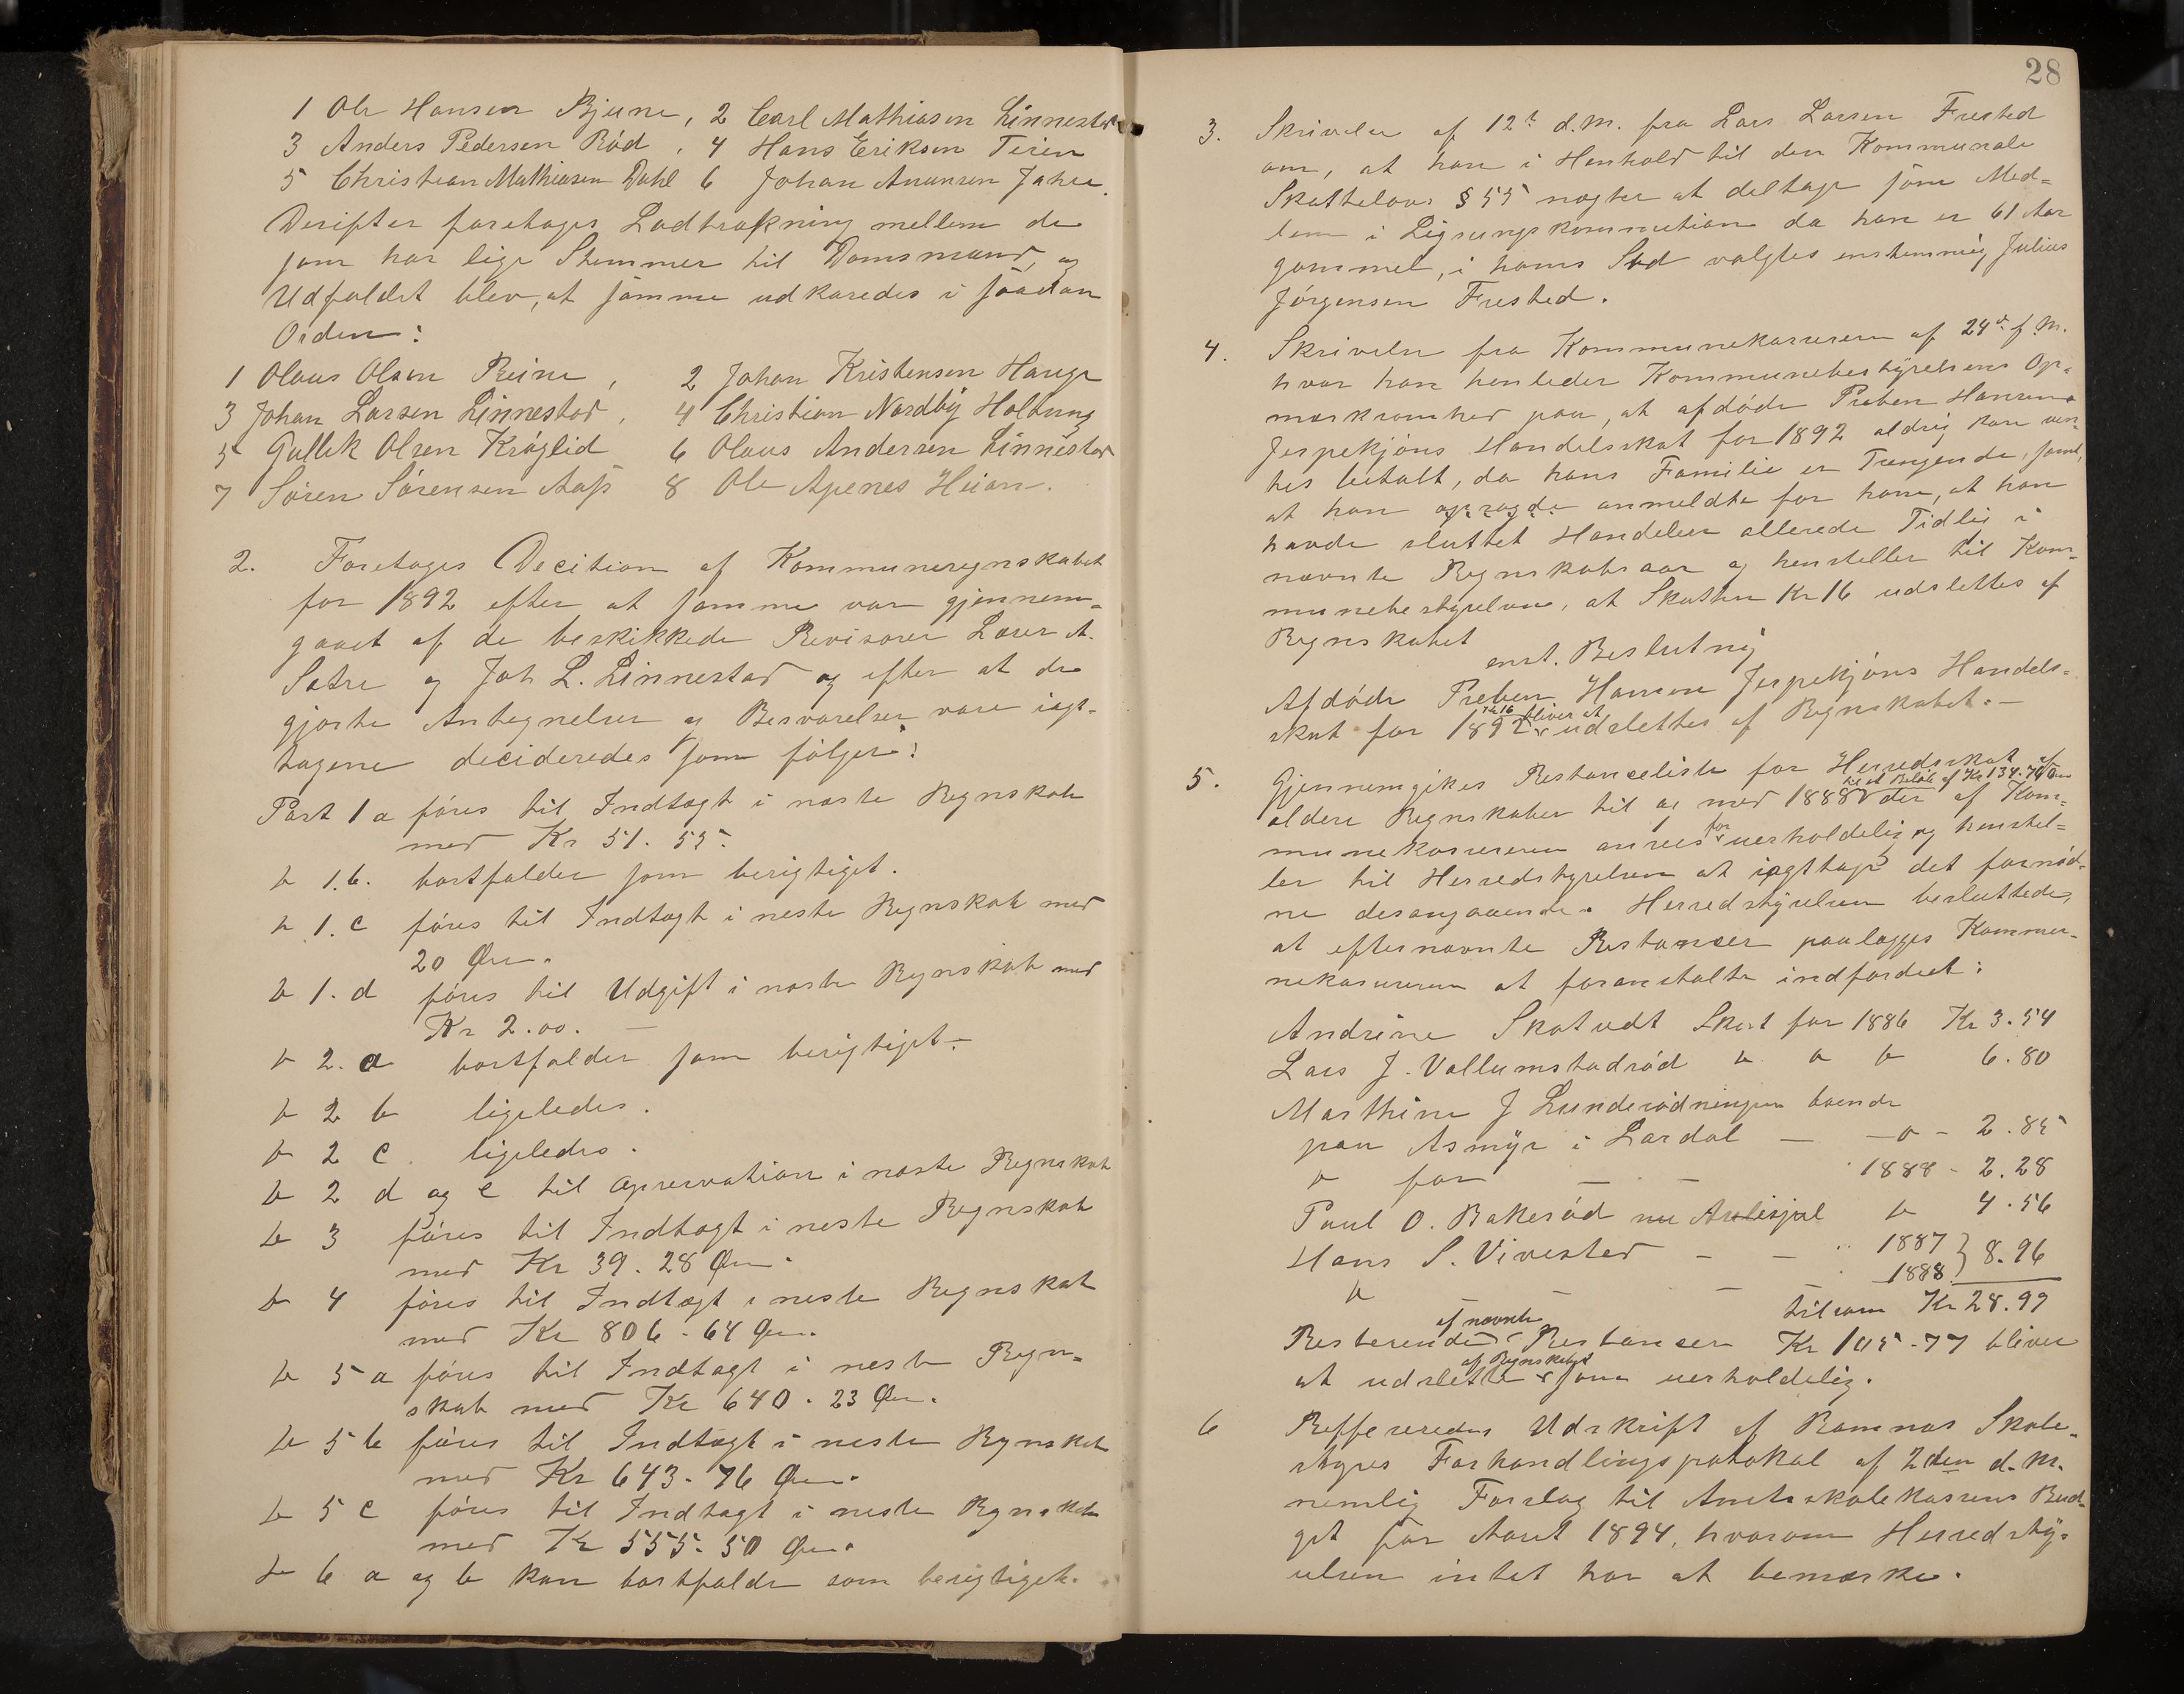 1 Ole Hansen Bjune, 2 Carl Mathiasen Linnestad
3 Anders Pedersen Rød, 4 Hans Eriksen Teien
5 Christian Mathiasen Dahl 6 Johan Anunsen Jahre.
Derefter foretages Lodtrækning mellem de
som har lige Stemmer til Domsmænd, og
Udfaldet blev, at samme udkaaredes i saadan
Orden:
1 Olaus Olsen Reine, 2 Johan Kristensen Hauge
3 Johan Larsen Linnestad, 4 Christian Nordby Holtung
5 Gullik Olsen Krøglid 6 Olaus Andersen Linnestad
7 Søren Sørensen Aass 8 Ole Apenes Heian.
2. Foretoges Decition af Kommuneregnskabet
for 1892 efter at samme var gjennem-
gaaet af de beskikkede Revisorer Lærer A.
Sætre og Joh L. Linnestad og efter at de
gjorte Antegnelser og Besvarelser vare iagt-
tagene decideredes som følger:
Post 1 a føres til Indtægt i næste Regnskab
med Kr 51.55.
" 1.b. bortfalder som berigtiget.
" 1.c føres til Indtægt i neste Regnskab med
20 Øre.
" 1.d føres til Udgift i næste Regnskab med
Kr 2.00. —
" 2.a bortfalder som berigtiget.-
" 2 b ligeledes.
" 2 c. ligeledes.
" 2 d og e til Opservation i næste Regnskab
" 3 føres til Indtægt i neste Regnskab
med Kr 39.28 Øre.
" 4 føres til Indtægt i neste Regnskab
med Kr 806-64 Øre.
" 5 a føres til Indtægt i neste Regn-
skab med Kr 640.23 Øre.
" 5 b føres til Indtægt i neste Regnskab
med Kr 643-76 Øre.
" 5 c føres til Indtægt i neste Regnskab
med Kr 555-50 Øre.
" 6 a og b kan bortfalde som berigtiget.
28
3. Skrivelse af 12te d.M. fra Lars Larsen Frested
om, at han i Henhold til den Kommunale
Skattelovs § 55 nægter at deltage som Med-
lem i Ligningskommition da han er 61 Aar
gammel, i hans Sted valgtes enstemmig Julius
Jørgensen Frested.
4. Skrivelse fra Kommunekassereren af 24de f.M.
hvor han henleder Kommunebestyrelsens Op-
mærksomhed paa, at afdøde Preben Hansen
Jerpekjøns Handelsskat for 1892 aldrig kan ven-
tes betalt, da hans Familie er Trængende, samt,
at han opsagde anmeldte for ham, at han
havde sluttet Handelen allerede Tidlig i
nævnte Regnskabsaar og henstiller til Kom-
munebestyrelsen, at Skatten Kr 16 udslettes af
Regnskabet
enst. Beslutnig
Afdøde Preben Hansen Jerpekjøns Handels-
skat for 1892 Kr 16 bliver at udslettes af Regnskabet.-
5. Gjennemgikes Restanceliste for Herredsskat af
ældere Regnskaber til og med 1888 til et Beløb af Kr 134.76 Øre der af Kom-
munekassereren ansees for uerholdelig og henstil-
ler til Herredstyrelsen at iagttage det fornød-
ne desangaaende. Herredstyrelsen besluttede,
at efternævnte Restanser paalægges Kommu-
nekassereren at foranstalte indfordret:
Andrine Skatvedt Skat for 1886 Kr 3.54
Lars J. Vallumstadrød " " " 6.80
Marthine J Lunderødningen boende
paa Asmyr i Lardal — —"- 2.85
" for — — 1888 - 2.28
Paul O. Bakerød nu " 4.56
Hans S. Vivestad - — " 1887 } 8.96
" — 1888
tilsam Kr 28.99
Resterende af nævnte Restancer Kr 105-77 bliver
at udslette af Regnskabet som uerholdelig.
6 Reffereredes Udskrift af Ramnæs Skole-
styres Forhandlingsprotokol af 2den d.M.
nemlig Forslag til Amtsskolekassens Bud-
get for Aaret 1894, hvorom Herredsty-
relsen intet har at bemærke.